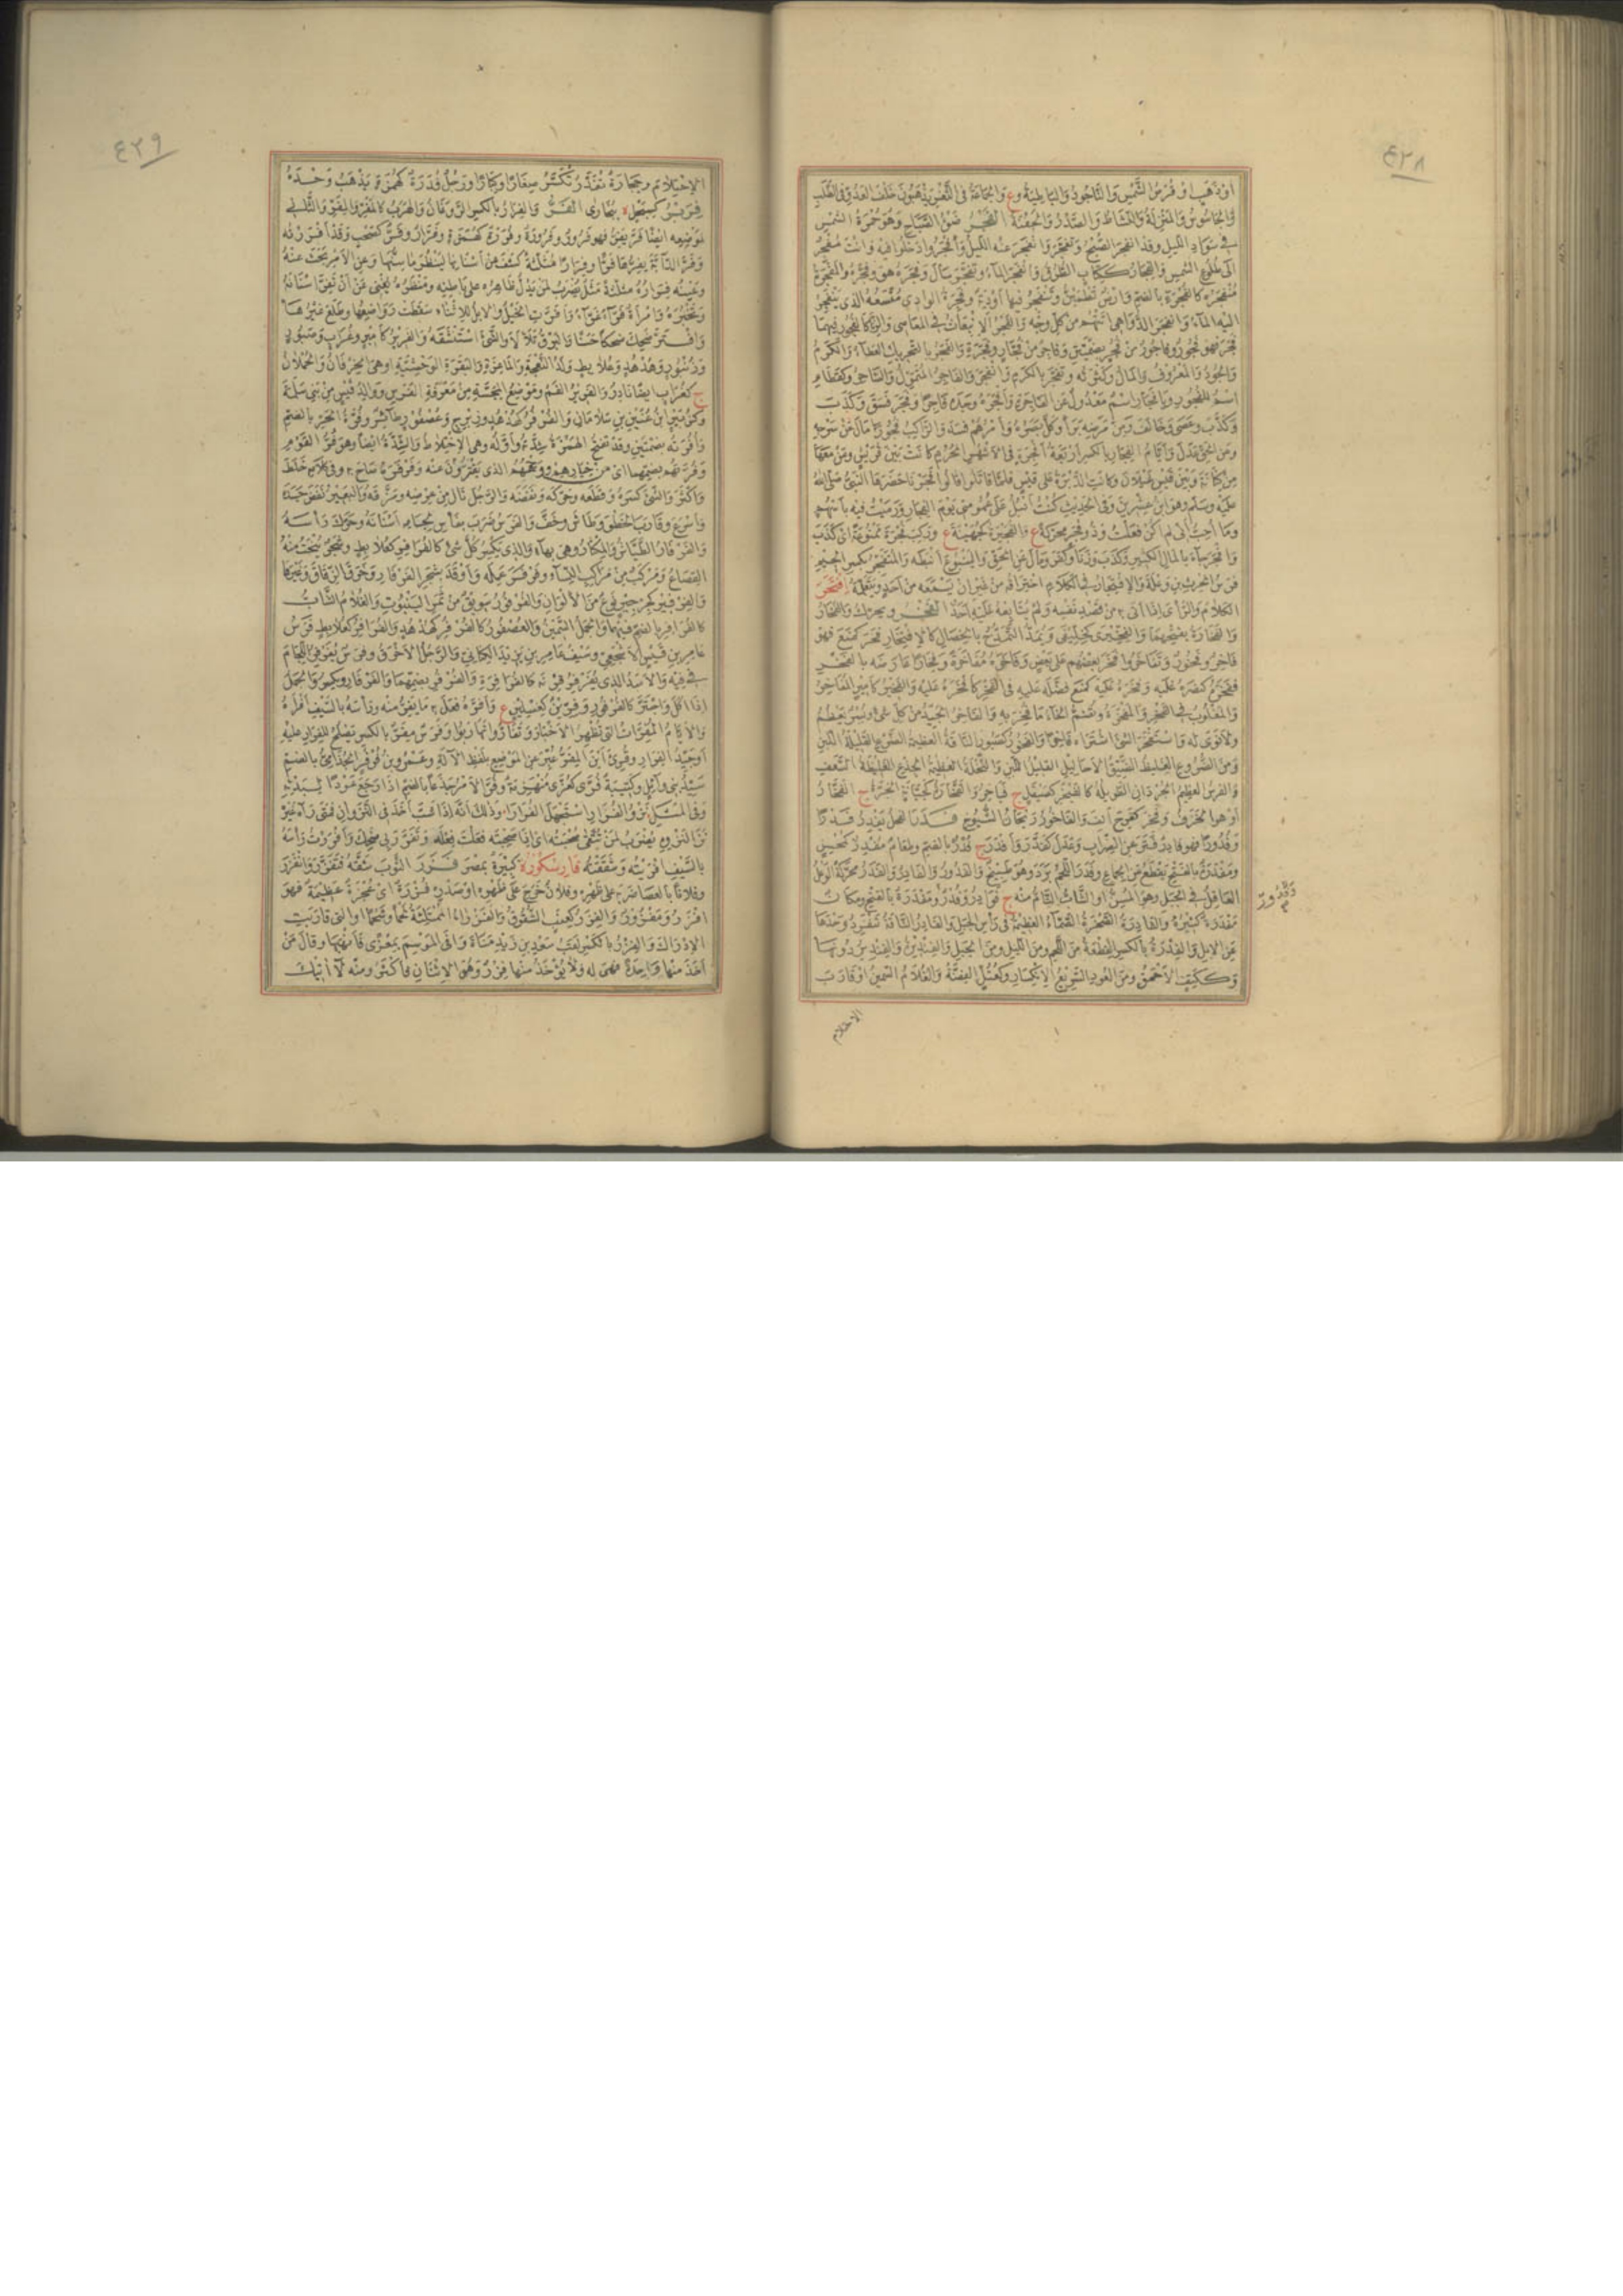 ٤٣٨
او ذهب او قرص الشمس والتاجود والباطية ع والجماعة في الثغر يذهبون خلف العدو في الطلب
والجاسوس
في سواد الليل وقد انفجر الصبح وتفجر وانفجر عنه الليل وافجروا دخلوا فيه وانت مفجر
الى طلوع الشمس والفجار ككتاب الطرق وانفجر الماء وتفجر سال وفجره هو وفجره والمفجرة
منفجره كالفجرة بالضم وارض تطمئن وتنفجر فيها اودية وفجرة الوادي متسعه الذي ينفجر
اليه الماء وانفجرت الدواهي اتتهم من كل وجه والفجر الانبعاث في المعاصي والزنا كالفجور فيهما
فجر فهو فجور وفاجور من فجر بضمتين وفاجر من فجار وفجرة والفجر بالتحريك العطاء والكرم
والجود والمعروف والمال وكثرته وتفجر بالكرم وانفجر والفاجر المتمول والساحر وكقطام
اسم للفجور ويا فجار اسم معدول عن الفاجرة وافجره وجده فاجرا وفجر فسق وكذب
وكذب وعصى وخالف ومن مرضه برأ وكل بصره وامرهم فسد والراكب فجورا مال عن سرجه
وعن الحق عدل وايام الفجار بالكسر اربعة افجرة في الاشهر الحرم كانت بين قريش ومن معها
من كنانة وبين قيس عيلان وكانت الدبرة على قيس فلما قاتلوا قالوا فجرنا حضرها النبي صلى الله
عليه وسلم وهو ابن عشرين وفي الحديث كنت انبل على عمومتي يوم الفجار ورميت فيه باسهم
وما احب اني لم اكن فعلت وذو فجر محركة ع والفجيرة كجهينة ع وركب فجرة ممنوعة اي كذب
وافجر جاء بالمال الكثير وكذب وزنا وكفر ومال عن الحق والينبوع انبطه والمتفجر بكسر الجيم
فرس الحرث بن وعلة والافتجار في الكلام اختراقه من غير ان يسمعه من احد ويتعلمه افتحر
الكلام والرأي اذا اتى به من قصد نفسه ولم يتابعه عليه احد الفخر ويحرك والفخار
والفخارة بفتحهما والفخيرى كخليفى ويمد التمدح بالخصال كالافتخار فخر كمنع فهو
فاخر وفخور وتفاخروا فخر بعضهم على بعض وفاخره مفاخرة وفخارا عارضه بالفخر
ففخره كنصره عليه وفخره عليه كمنع فضله عليه في الفخر كافخره عليه والفخير كامير المفاخر
والمغلوب في الفخر والمفخرة وتضم الخاء ما فخر به والفاخر الجيد من كل شيء وبسر يعظم
ولا نوى له واستفخر الشيء اشتراه فاخرا والفخور كصبور الناقة العظيمة الضرع القليلة اللبن
ومن الضروع الغليظ الضيق الاحاليل القليل اللبن والنخلة العظيمة الجذع الغليظة السعف
والفرس العظيم الجردان الطويله كالفيخر كصيقل ج فياخر والفخارة كجبانة الجرة ج الفخار
او هو الخزف وفخر كفرح انف والفاخور ريحان الشيوخ فدر الفحل يفدر فدرا
وفدورا فهو فادر فتر عن الضراب وعدل كفدر وافدر ج فدر بالضم وطعام مفدر كمحسن
ومفدرة بالفتح يقطع عن الجماع وفدر اللحم برد وهو طبيخ والفدور والفادر والفدر محركة الوعل
العاقل في الجبل وهو المسن او الشاب التام منه ج فوادر وفدر ومفدرة بالفتح ومكان
مفدرة كثيرة والفادرة الصخرة الصماء العظيمة في رأس الجبل والفادر الناقة تنفرد وحدها
عن الابل والفدرة بالكسر القطعة من اللحم ومن الليل ومن الجبل والفندير والفنديرة دونها
وككتف الاحمق ومن العود السريع الانكسار وكعتل الفضة والغلام السمين او قارب
وفدور
الاحتلام
٤٣٩
الاحتلام وحجارة تفدر تكسر صغارا وكبارا ورجل فدرة كهمزة يذهب وحده
فربر كسبحل ة ببخارى الفر والفرار بالكسر الروغان والهرب كالمفر والمفر والثاني
لموضعه ايضا فر يفر فهو فرور وفرورة وفررة كهمزة وفرار وفر كصحب وقد افررته
وفر الدابة يفرها فرا وفرارا مثلثة كشف عن اسنانها لينظر ما سنها وعن الامر بحث عنه
وعينه فراره مثلثة مثل يضرب لمن يدل ظاهره على باطنه ومنظره يغني عن ان تفر اسنانه
وتختبره وامرأة فراء غراء وافرت الخيل والابل للاثناء سقطت رواضعها وطلع غيرها
وافتر ضحك ضحكا حسنا والبرق تلألأ والشيء استنشقه والفرير كامير وغراب وصبور
وزنبور وهدهد وعلابط ولد النعجة والماعزة والبقرة الوحشية او هي الخرفان والحملان
ج كغراب ايضا نادر والفرير الفم وموضع المجسة من معرفة الفرس ووالد قيس من بني سلمة
وكزبير ابن عنين بن سلامان والفرفر كهدهد وزبرج وعصفور طائر وفرة الحر بالضم
وافرته بضمتين وقد تفتح الهمزة شدته واوله وهي الاختلاط والشدة ايضا وهو فر القوم
وفرتهم بضمهما اي من خيارهم ووجههم الذي يفترون عنه وفرفر صاح به وفي كلامه خلط
واكثر والشيء كسره وقطعه وحركه ونفضه والرجل نال من عرضه ومزقه والبعير نفض جسده
واسرع وقارب الخطو وطاش وخف والفرس ضرب بفأس لجامه اسنانه وحرك رأسه
والفرفار الطيار والمكثار وهي بهاء والذي يكسر كل شيء كالفرافر كعلابط وشجر ينحت منه
القصاع ومركب من مراكب النساء وفرفر عمله واوقد بشجر الفرفار وخرق الزقاق وغيرها
والفرفير كجرجير نوع من الالوان والفرفور سويق من ثمر الينبوت والغلام الشاب
كالفرافر بالضم فيهما والجمل السمين والعصفور كالفرفر كهدهد والفرافر كعلابط فرس
عامر بن قيس الاشجعي وسيف عامر بن يزيد الكناني والرجل الاخرق وفرس يفرفر اللجام
في فيه والاسد الذي يفرفر قرنه كالفرافرة والفرفر بضمهما والفرفار ويكسر والجمل
اذا اكل واجتر كالفرفور وفرين كغسلين ع وافره فعل به ما يفر منه ورأسه بالسيف افراه
والايام المفرات التي تظهر الاخبار وتفاروا تهاربوا وفرس مفر بالكسر يصلح للفرار عليه
او جيد الفرار وقرئ اين المفر عبر عن الموضع بلفظ الالة وعمرو بن فرفر الجذامي بالضم
سيد بني وائل وكتيبة فرى كعزى منهزمة وفر الامر جذعا بالضم اذا رجع عودا لبدئه
وفي المثل نزو الفرار استجهل الفرارا وذلك انه اذا شب اخذ في النزوان فمتى رآه غيره
نزا لنزوه يضرب لمن تتقى صحبته اي اذا صحبته فعلت فعله وتفرر بي ضحك وافررت رأسه
بالسيف افريته وشققته فارسكور ة كبيرة بمصر فزر الثوب شقه فتفزر وانفزر
وفلانا بالعصا ضربه على ظهره وفلان خرج على ظهره او صدره فزرة اي عجرة عظيمة فهو
افزر ومفزور والفزر كعنب الشقوق والفزراء الممتلئة لحما وشحما او التي قاربت
الادراك والفزر بالكسر لقب سعد بن زيد مناة وافى الموسم بمعزى فانهبها وقال من
اخذ منها واحدة فهي له ولا يؤخذ منها فزر وهو الاثنان فاكثر ومنه لا اتيك